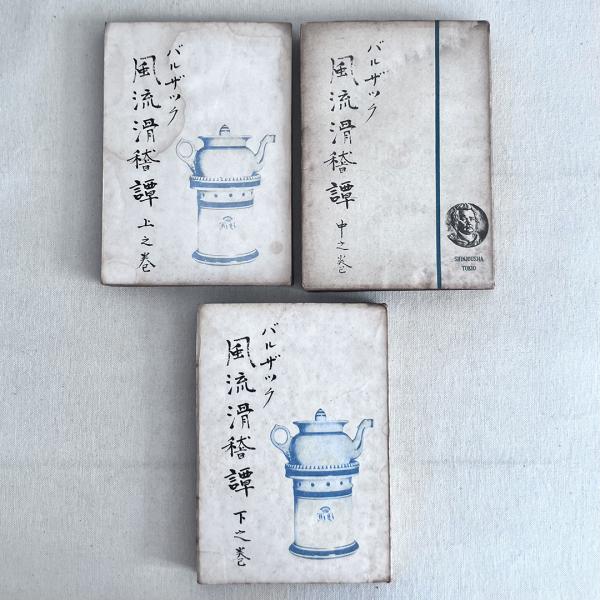 バルザック
風流滑稽譚
上之巻
バルザック
風流滑稽譚
中之巻
SHINJOUSHA
TOKIO
バルザック
風流滑稽譚
下之巻